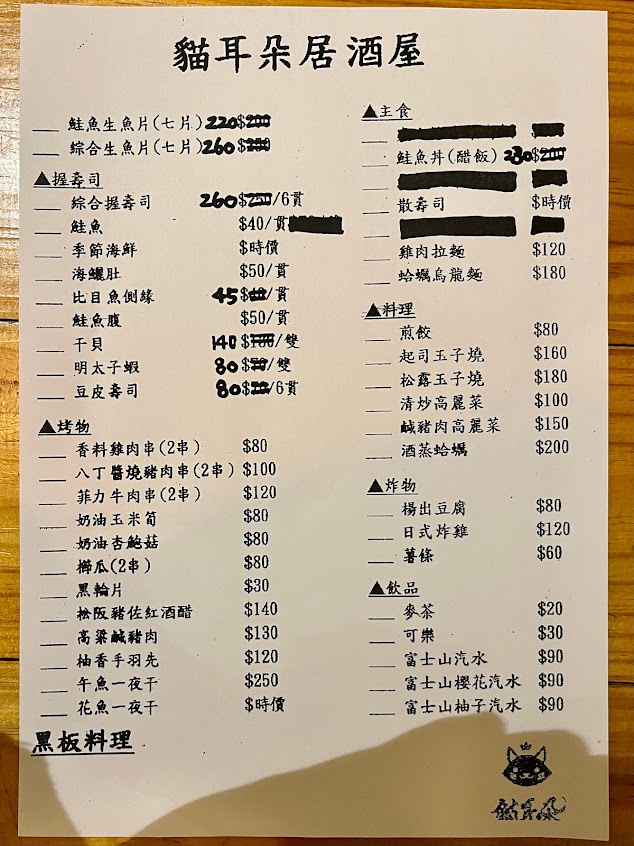 貓耳朵居酒屋
鮭魚生魚片(七片)220$200
綜合生魚片(七片)260$
▲握壽司
綜合握壽司 260$250/6貫
鮭魚 $40/貫
季節海鮮 $時價
海鱺肚 $50/貫
比目魚側緣 45$/貫
鮭魚腹 $50/貫
干貝 140$/雙
明太子蝦 80$/雙
豆皮壽司 80$/6貫
▲烤物
香料雞肉串(2串) $80
八丁醬燒豬肉串(2串) $100
菲力牛肉串(2串) $120
奶油玉米筍 $80
奶油杏鮑菇 $80
櫛瓜(2串) $80
黑輪片 $30
松阪豬佐紅酒醋 $140
高粱鹹豬肉 $130
柚香手羽先 $120
午魚一夜干 $250
花魚一夜干 $時價
黑板料理
▲主食
鮭魚丼(醋飯) 230$200
散壽司 $時價
雞肉拉麵 $120
蛤蠣烏龍麵 $180
▲料理
煎餃 $80
起司玉子燒 $160
松露玉子燒 $180
清炒高麗菜 $100
鹹豬肉高麗菜 $150
酒蒸蛤蠣 $200
▲炸物
揚出豆腐 $80
日式炸雞 $120
薯條 $60
▲飲品
麥茶 $20
可樂 $30
富士山汽水 $90
富士山櫻花汽水 $90
富士山柚子汽水 $90
貓耳朵